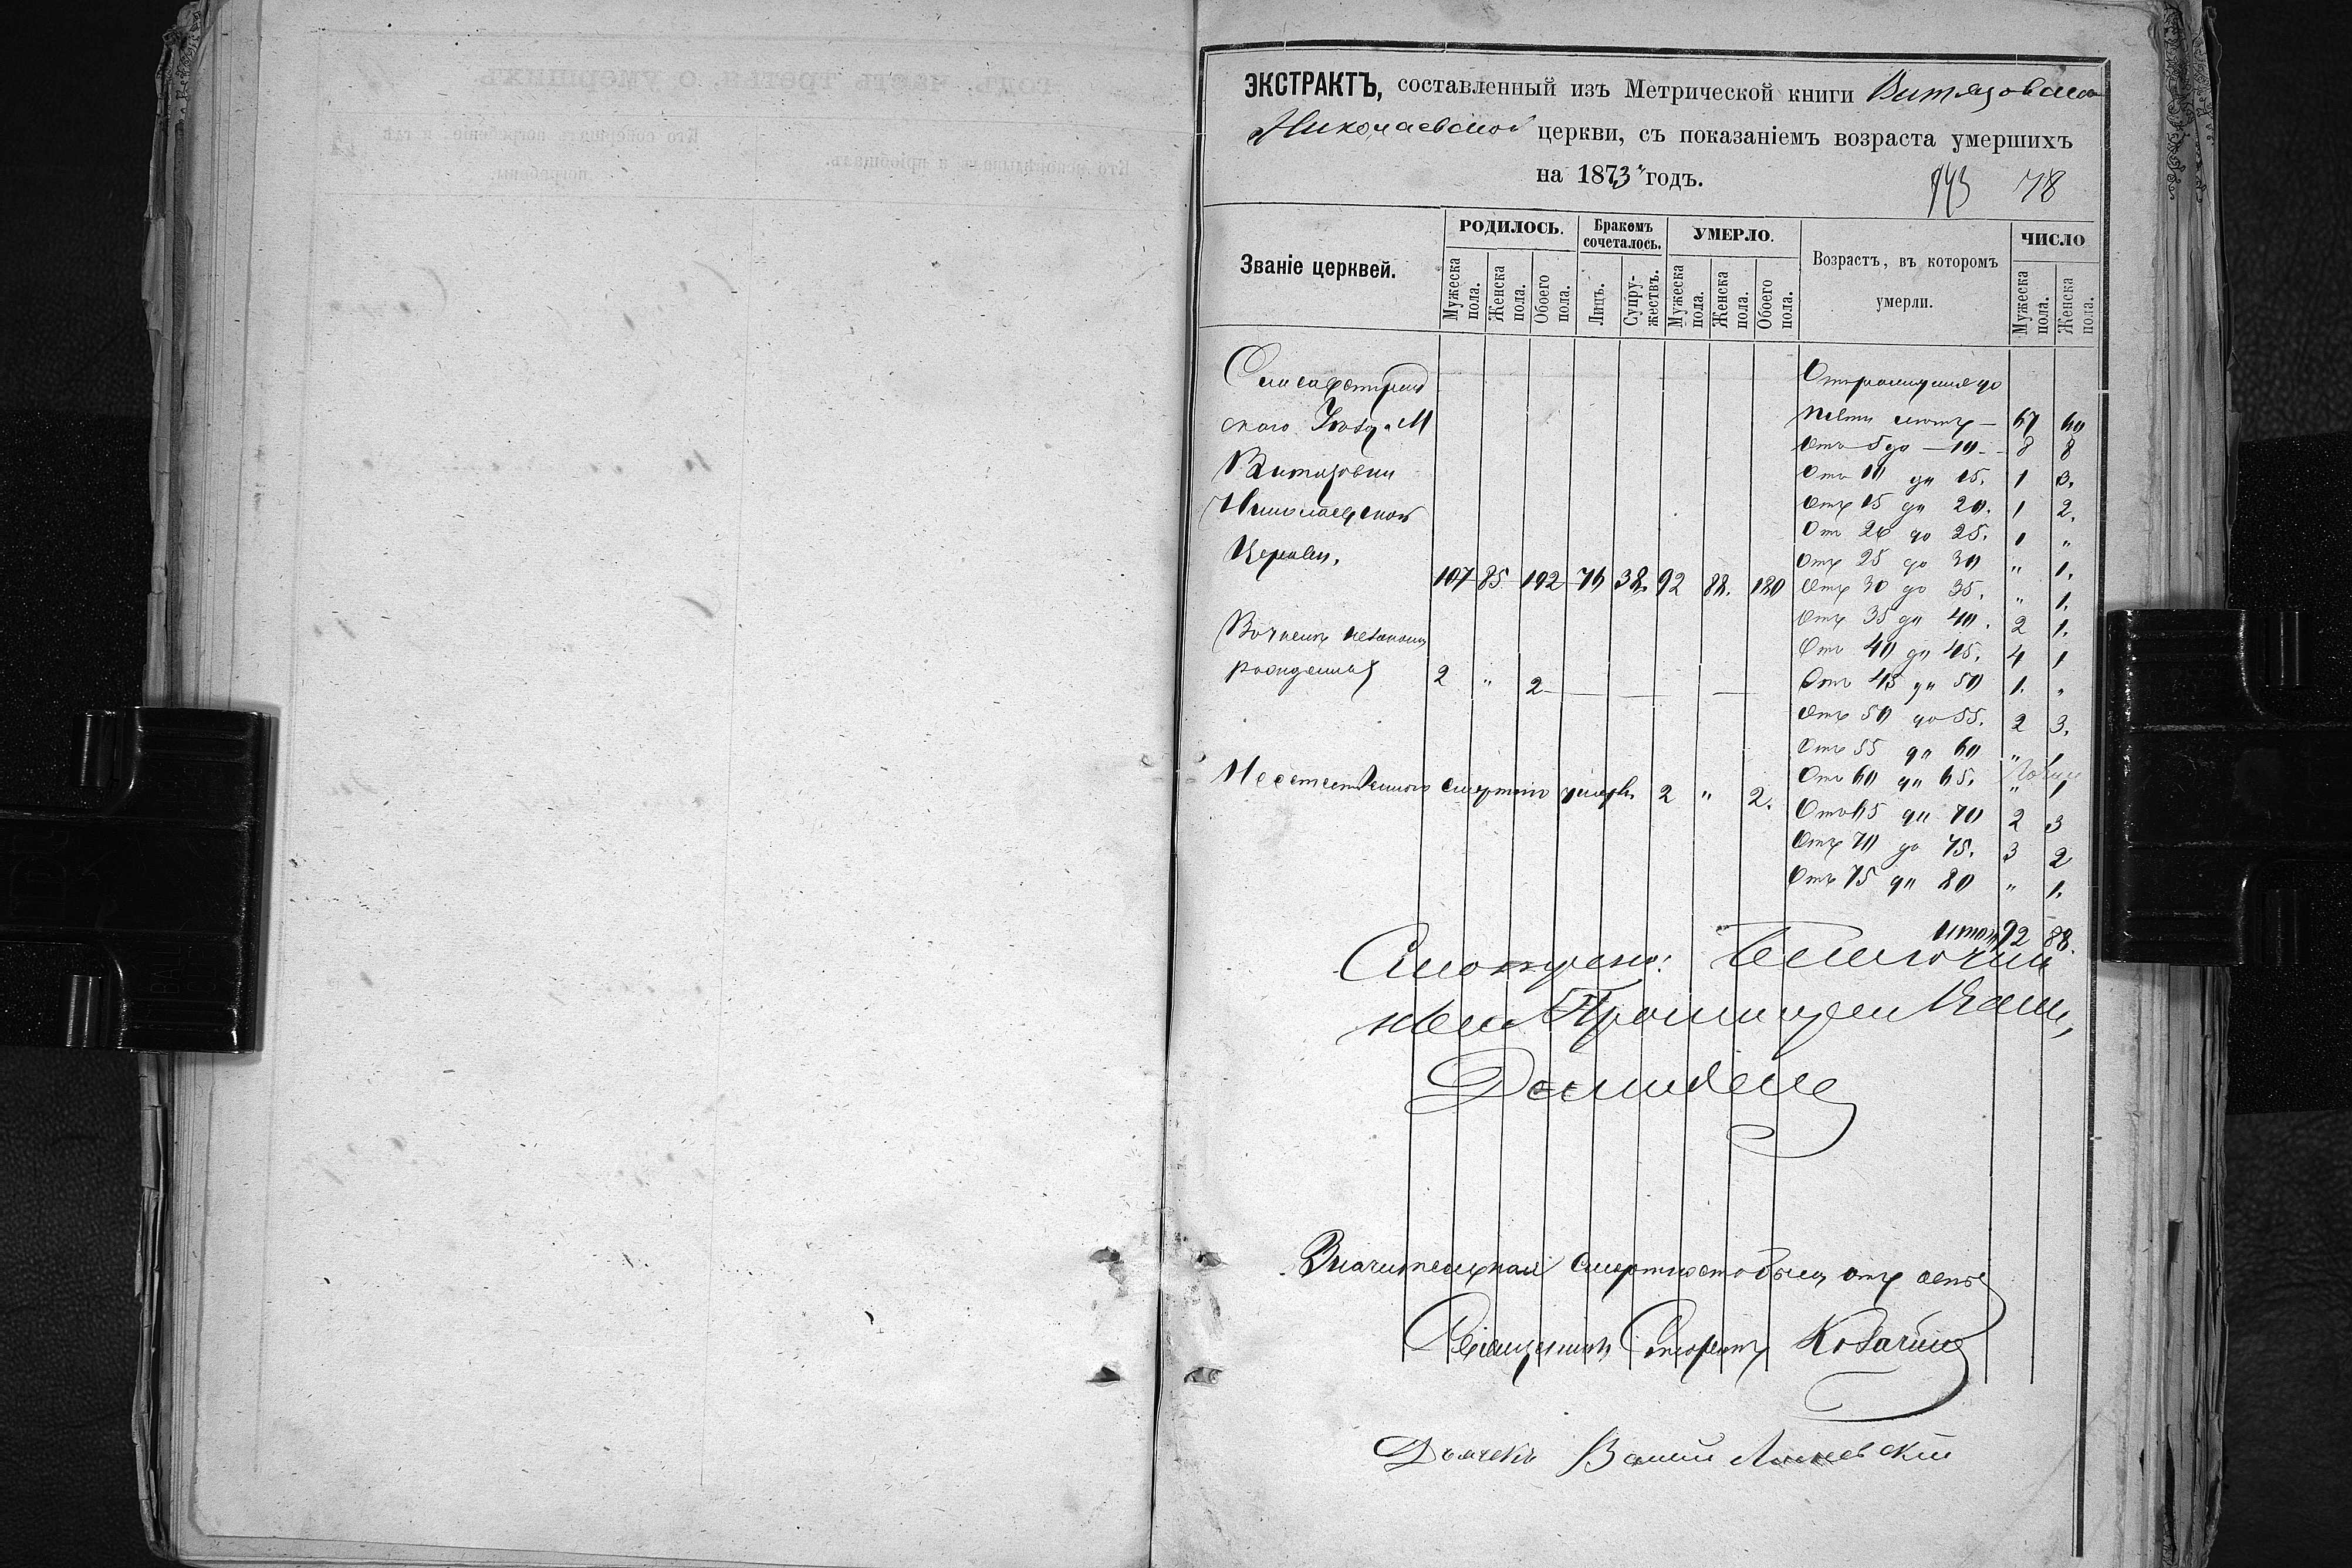 ЭКСТРАКТЪ, составленный изъ Метрической книги Витязовской
Николаевской церкви, съ показаніемъ возраста умершихъ
на 1873 годъ.
78
Званіе церквей.
РОДИЛОСЬ.
Мужеска пола.
Женска пола.
Обоего пола.
Бракомъ сочеталось.
Лицъ.
Супружествъ.
УМЕРЛО.
Мужеска пола.
Женска пола.
Обоего пола.
Возрастъ, въ которомъ умерли.
ЧИСЛО
Мужеска пола.
Женска пола.
Елисаветград
скаго М
Витязовки
Николаевской
Церкви.
107 85 192 76 38. 92 88. 180
В числѣ незакон
рожденных 2 " 2
Неестественною смертію умерли 2 " 2.
Отъ рожденія до
пяти лѣтъ — 67 60
Отъ 5 до — 10 8 8
Отъ 10 до 15. 1 3.
Отъ 15 до 20. 1 2.
Отъ 20 до 25. 1 "
Отъ 25 до 30 " 1.
Отъ 30 до 35. " 1.
Отъ 35 до 40. 2 1.
Отъ 40 до 45. 4 1
Отъ 45 до 50 1. "
Отъ 50 до 55. 2 3.
Отъ 55 до 60 " 1
Отъ 60 до 65. " 1
Отъ 65 до 70 2 3
Отъ 70 до 75. 3 2
Отъ 75 до 80 " 1.
Итого 92 88.
Смотрено: Благочин
ный
Значительная смертность была отъ оспы
Священникъ Козачин
Дьячекъ